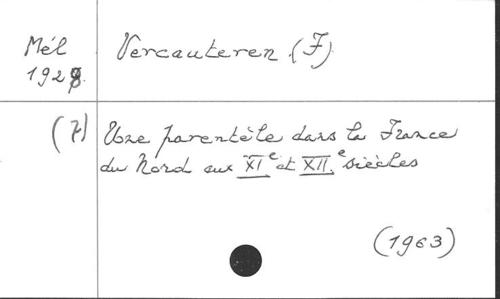 Mél
192
Vercauteren (F)
(7) Une parentèle dans la France
du Nord aux XIe et XIIe siècles
(1963)